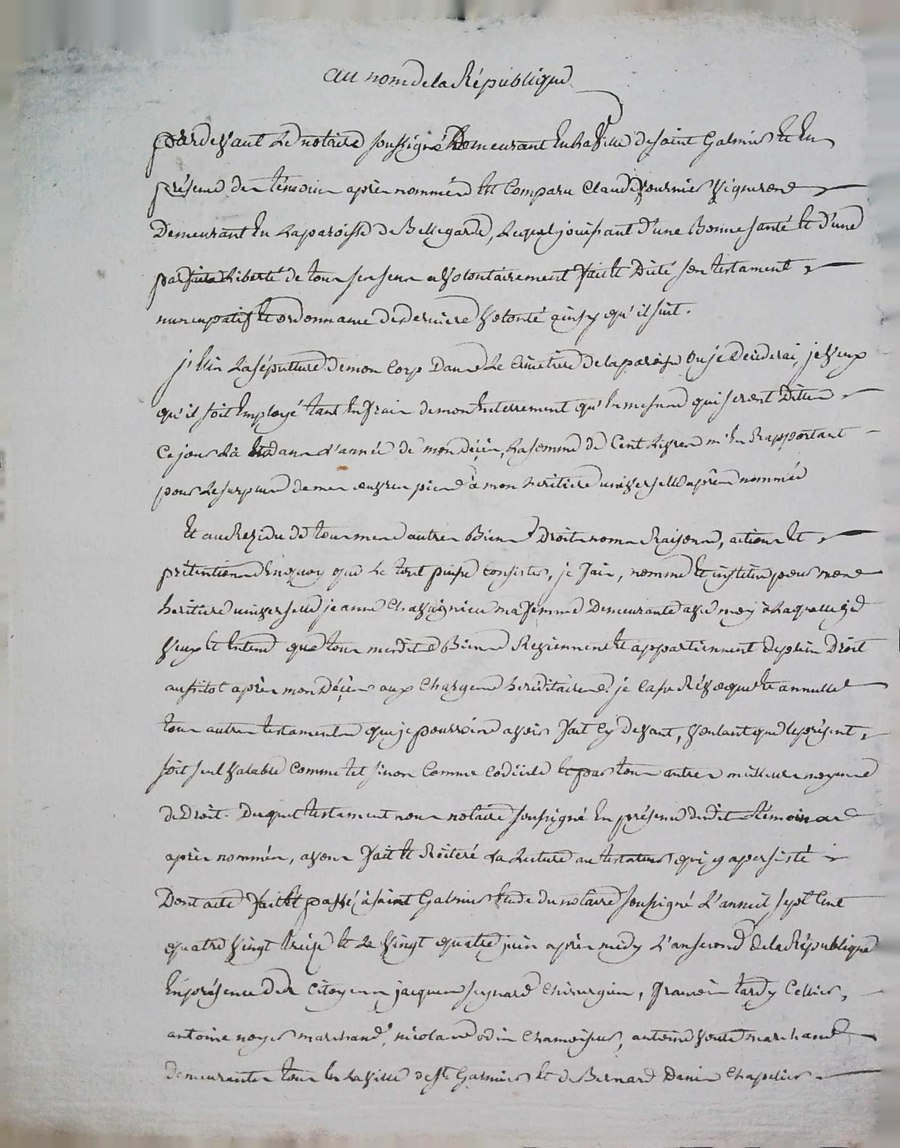 au nom de la République
pardevant le notaire soussigné Demeurant En la Ville de saint Galmier Et En
présence des témoins après nommés Est Comparu Claude fournier Vigneron
Demeurant En la paroisse de Bellegarde, Lequel jouissant d'une Bonne santé Et d'une
parfaite Liberté de tous ses sens a Volontairement fait Et Dicté son testament
nuncupatif Et ordonnance de derniere Volonté ainsy qu'il suit.
j'Elis La sépulture de mon Corp Dans Le Cimetiere de la paroisse Ou je Décederai, je Veux
qu'il soit Employé tant En frais de mon Enterrement qu'En messes qui seront Dittes
Ce jour là Et dans L'année de mon décès, La somme de Cent Livres m'En Rapportant
pour Le surplus de mes œuvres pies à mon heritiere universelle après nommée
Et au Rezidu de tous mes autres Biens Droits noms Raisons, actions Et
prétentions En quoy que Le tout puisse Consister, je fais, nomme Et institue pour mon
heritiere universelle jeanne Chavaignieu ma femme Demeurante avec moy à Laquelle je
Veux Et Entend que tous mesdits Biens Reviennent Et appartiennent de plein Droit
aussitot après mon Décès aux Charges héréditaires, je Casse Révoque Et annulle
tous autres testaments que je pourrois avoir fait Cy devant, Voulant que le présent
soit seul Valable Comme tel sinon Comme Codicile Et par tous autres meilleurs moyens
de Droit. Duquel testament nous notaire soussigné En présence desdits témoins
après nommés, avons fait Et Réiteré La Lecture au testateur qui y a persisté
Dont acte fait Et passé à saint Galmier Etude du notaire soussigné L'an mil sept Cent
quatre Vingt treize Et Le Vingt quatre juin après midy L'an second de la République
En présence des Citoyens jacques seynard Chirurgien, françois tardy Cellier,
antoine noyer marchand, nicolas odin Chamoiseur, antoine Voute marchand
demeurants tous En La Ville de St Galmier Et de Bernard Denis Chapelier